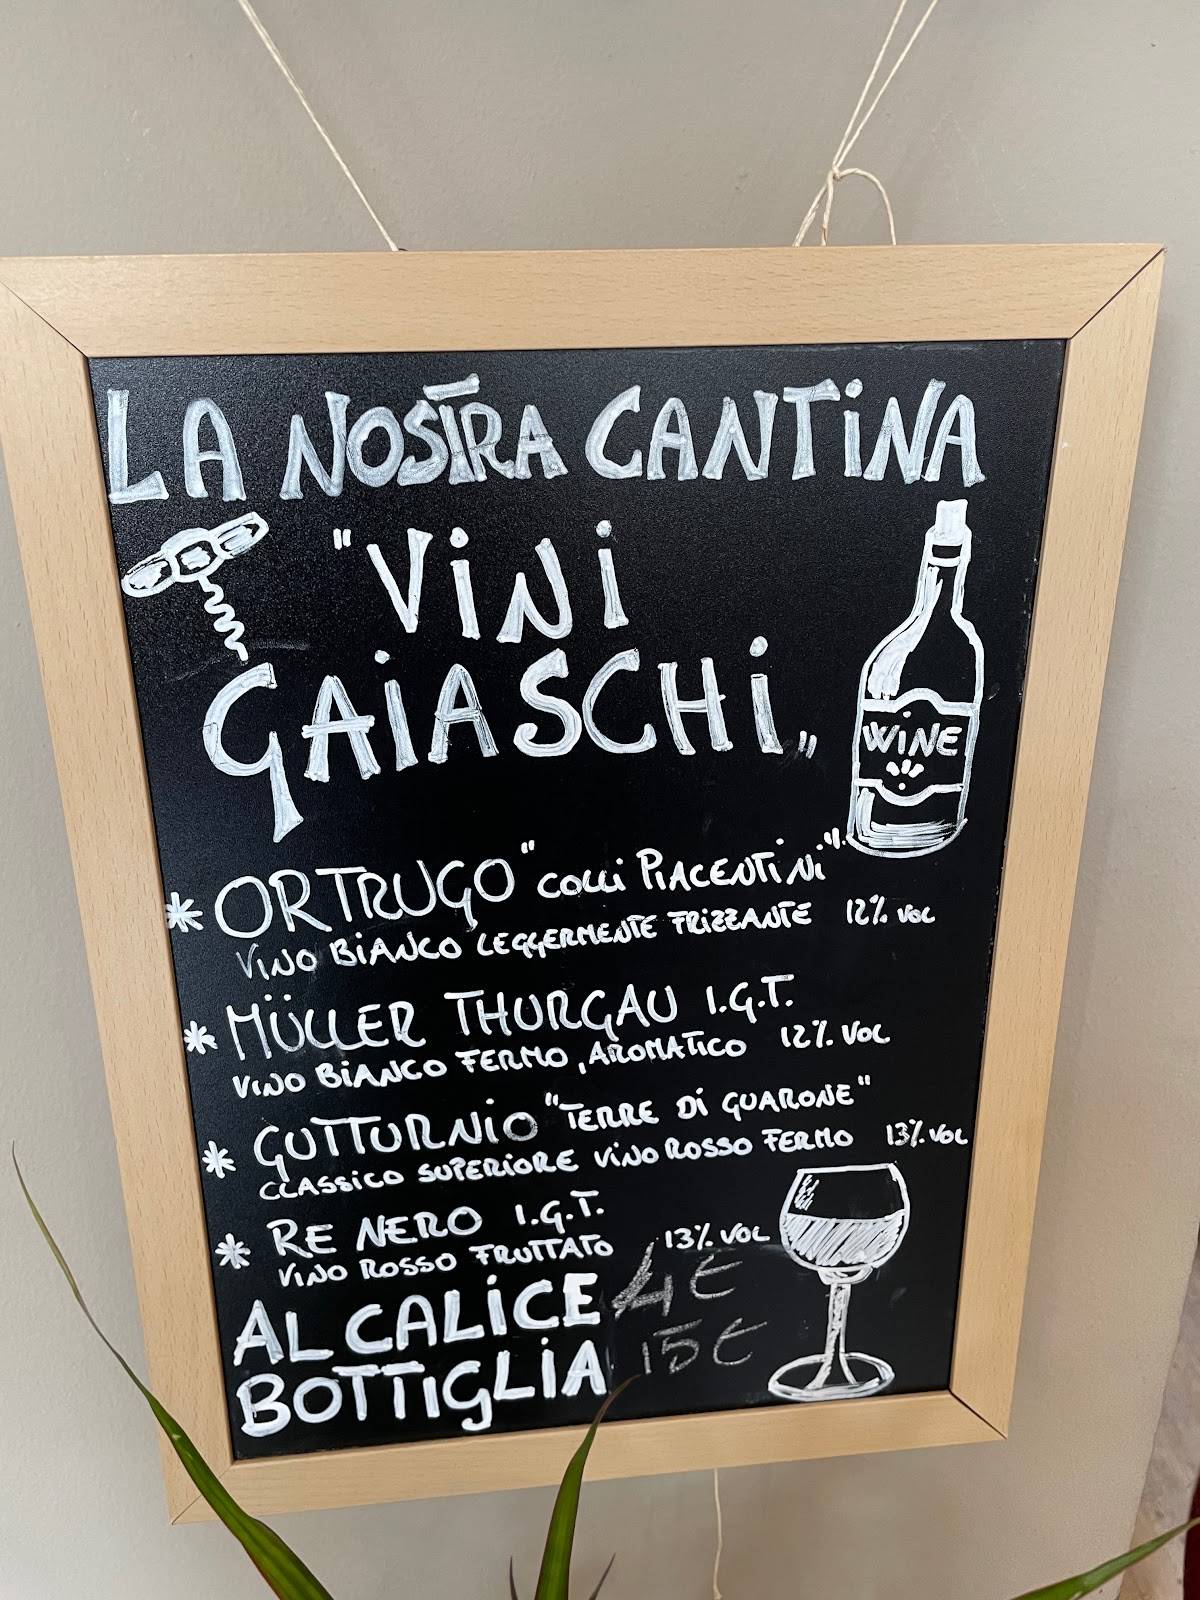 LA NOSTRA CANTINA
"VINI
GAIASCHI"
WINE
* ORTRUGO "COLLI PIACENTINI"
VINO BIANCO LEGGERMENTE FRIZZANTE 12% VOL
* MÜLLER THURGAU I.G.T.
VINO BIANCO FERMO, AROMATICO 12% VOL
* GUTTURNIO "TERRE DI GUARONE"
CLASSICO SUPERIORE VINO ROSSO FERMO 13% VOL
* RE NERO I.G.T.
VINO ROSSO FRUTTATO 13% VOL
AL CALICE 4€
BOTTIGLIA 15€